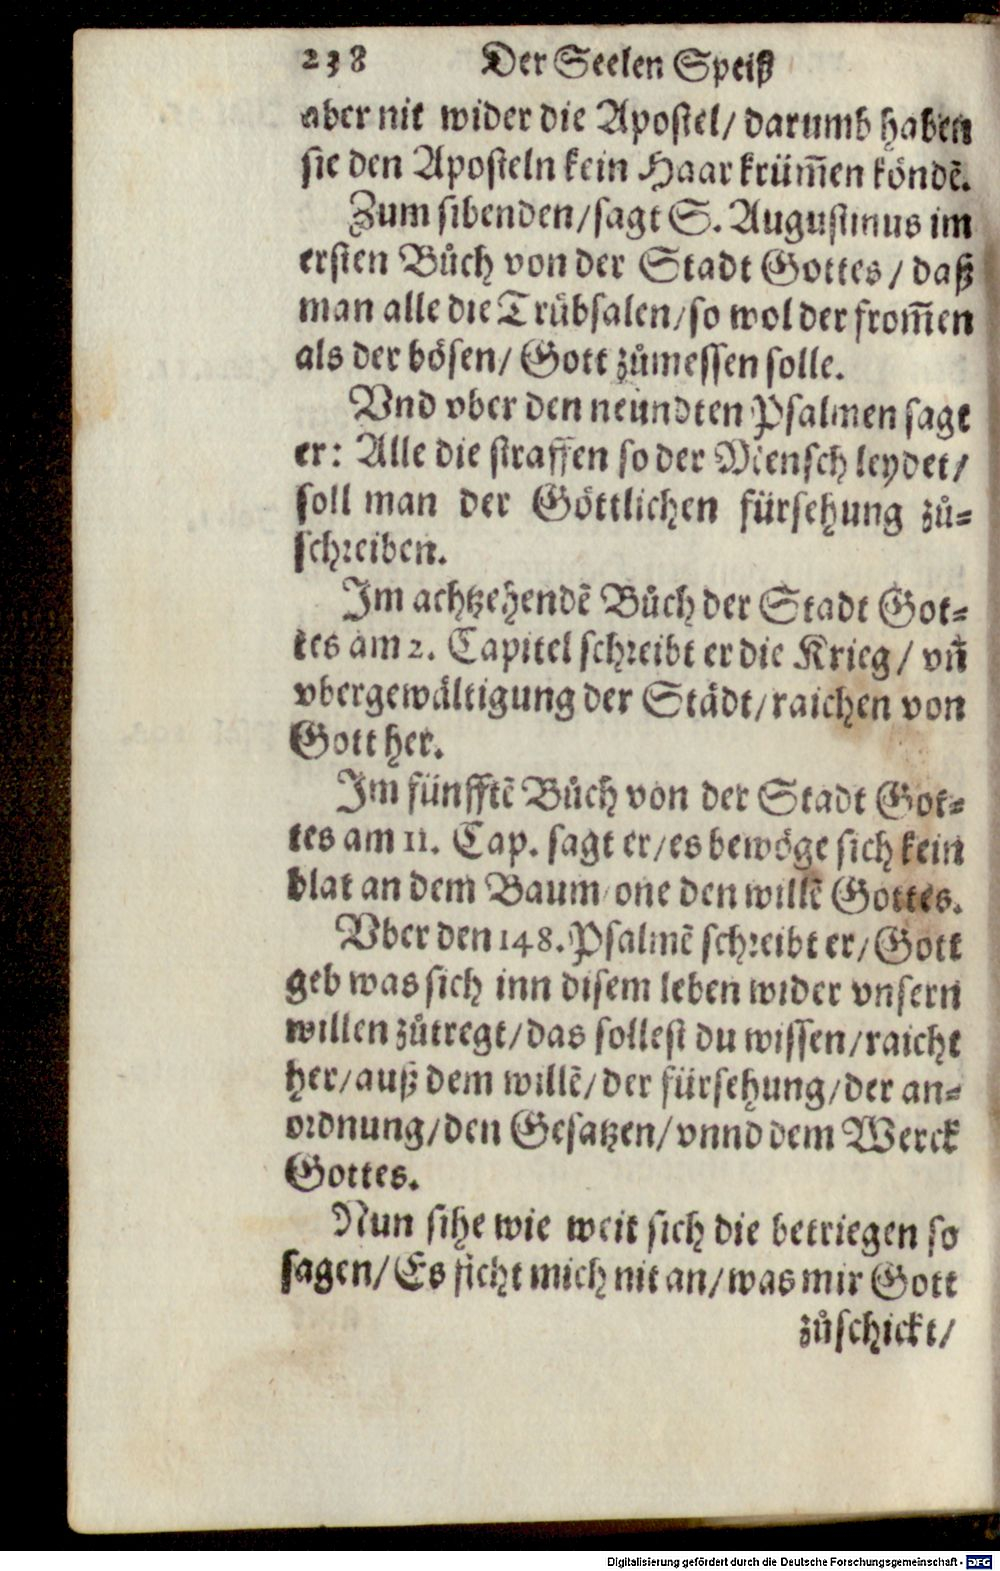 238 Der Seelen Speiß
aber nit wider die Apostel/ darumb haben
sie den Aposteln kein Haar krüm̃en köndẽ.
Zum sibenden/ sagt S. Augustinus im
ersten Bůch von der Stadt Gottes/ daß
man alle die Trůbsalen/ so wol der from̃en
als der bösen/ Gott zůmessen solle.
Vnd vber den neundten Psalmen sagt
er: Alle die straffen so der Mensch leydet/
soll man der Göttlichen fürsehung zů-
schreiben.
Im achtzehendẽ Bůch der Stadt Got-
tes am 2. Capitel schreibt er die Krieg/ vñ
vbergewältigung der Städt/ raichen von
Gott her.
Im fünfftẽ Bůch von der Stadt Got-
tes am 11. Cap. sagt er/ es bewöge sich kein
blat an dem Baum/ one den willẽ Gottes.
Vber den 148. Psalmẽ schreibt er/ Gott
geb was sich inn disem leben wider vnsern
willen zůtregt/ das sollest du wissen/ raicht
her/ auß dem willẽ/ der fürsehung/ der an-
ordnung/ den Gesatzen/ vnnd dem Werck
Gottes.
Nun sihe wie weit sich die betriegen so
sagen/ Es ficht mich nit an/ was mir Gott
zůschickt/
Digitalisierung gefördert durch die Deutsche Forschungsgemeinschaft - DFG